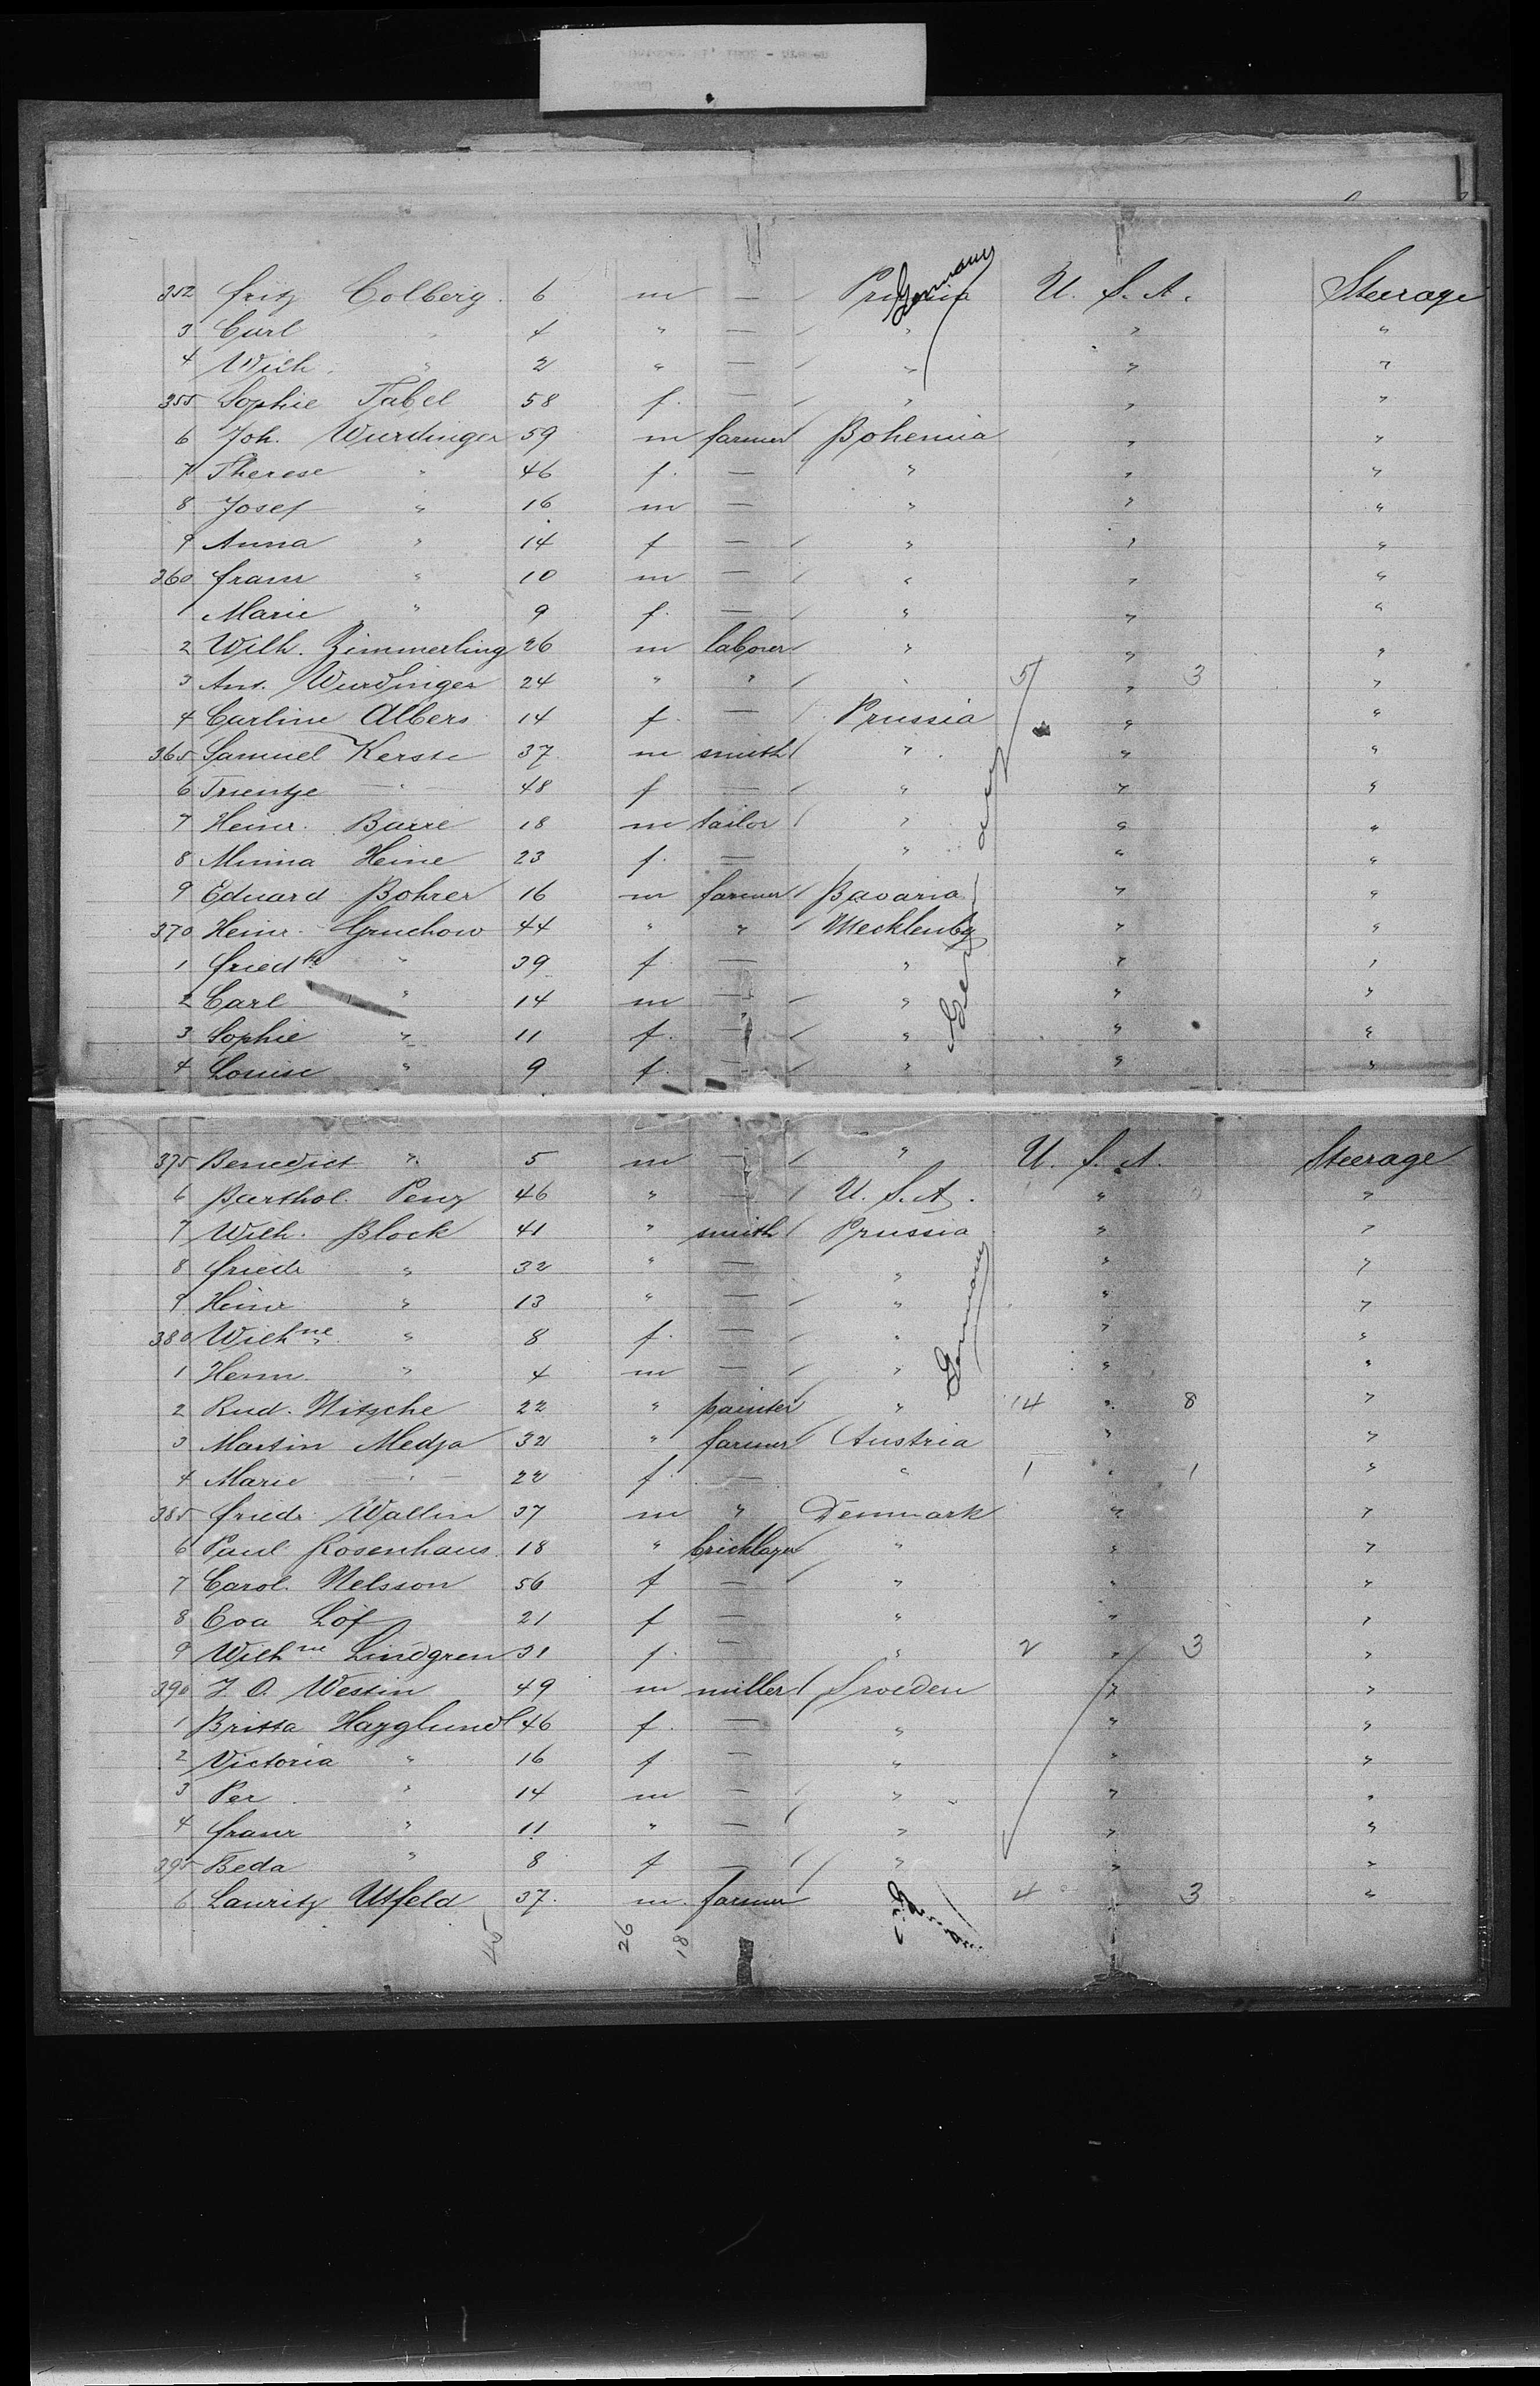 352 Fritz Colberg. 6 m — Prussia U. S. A. Steerage
Germany
3 Carl " 4 " — " " "
4 Wilh. " 2 " — " " "
355 Sophie Tabel 58 f. — " " "
6 Joh. Wurdinger 59 m farmer Bohemia " "
7 Therese " 46 f. — " " "
8 Josef " 16 m — " " "
9 Anna " 14 f — " " "
360 Franz " 10 m — " " "
1 Marie " 9 f. — " " "
2 Wilh. Zimmerling 26 m laborer " " "
3 Ant. Wurdinger 24 " " " 5 " 3 "
4 Carline Albers 14 f. — Prussia " "
365 Samuel Kerste 37 m smith " " "
6 Trientje " 48 f — " " "
7 Heinr. Barre 18 m tailor " " "
8 Minna Heine 23 f. — " " "
9 Eduard Bohrer 16 m farmer Bavaria " "
370 Heinr. Gruchow 44 " " Mecklenbg " "
1 Friedke " 39 f — " " "
2 Carl " 14 m — " " "
3 Sophie " 11 f. — " " "
4 Louise " 9 f. — " " "
Germany
375 Benedict " 5 m — " U. S. A. Steerage
6 Barthol. Penz 46 " — U. S. A. " "
7 Wilh. Block 41 " smith Prussia " "
8 Friedr " 32 " — " " "
9 Heinr " 13 " — " " "
380 Wilhne " 8 f. — " " "
1 Herm. " 4 m — " " "
Germany
2 Rud. Nitzche 22 " painter " 14 " 8 "
3 Martin Medja 32 " farmer Austria " "
4 Marie " 22 f — " 1 " 1 "
385 Friedr. Wallin 37 m " Denmark " "
6 Paul Rosenhaus. 18 " bricklayer " " "
7 Carol. Nelsson 56 f — " " "
8 Eva Löf 21 f — " " "
9 Wilhne Lindgren 31 f. — " 2 " 3 "
390 J. O. Westin 49 m miller Sweden " "
1 Britta Hagglund 46 f. — " " "
2 Victoria " 16 f — " " "
3 Per " 14 m — " " "
4 Franz " 11 " — " " "
395 Beda " 8 f — " " "
6 Lauritz Utfeld 37. m. farmer 4 3 "
45 26 18